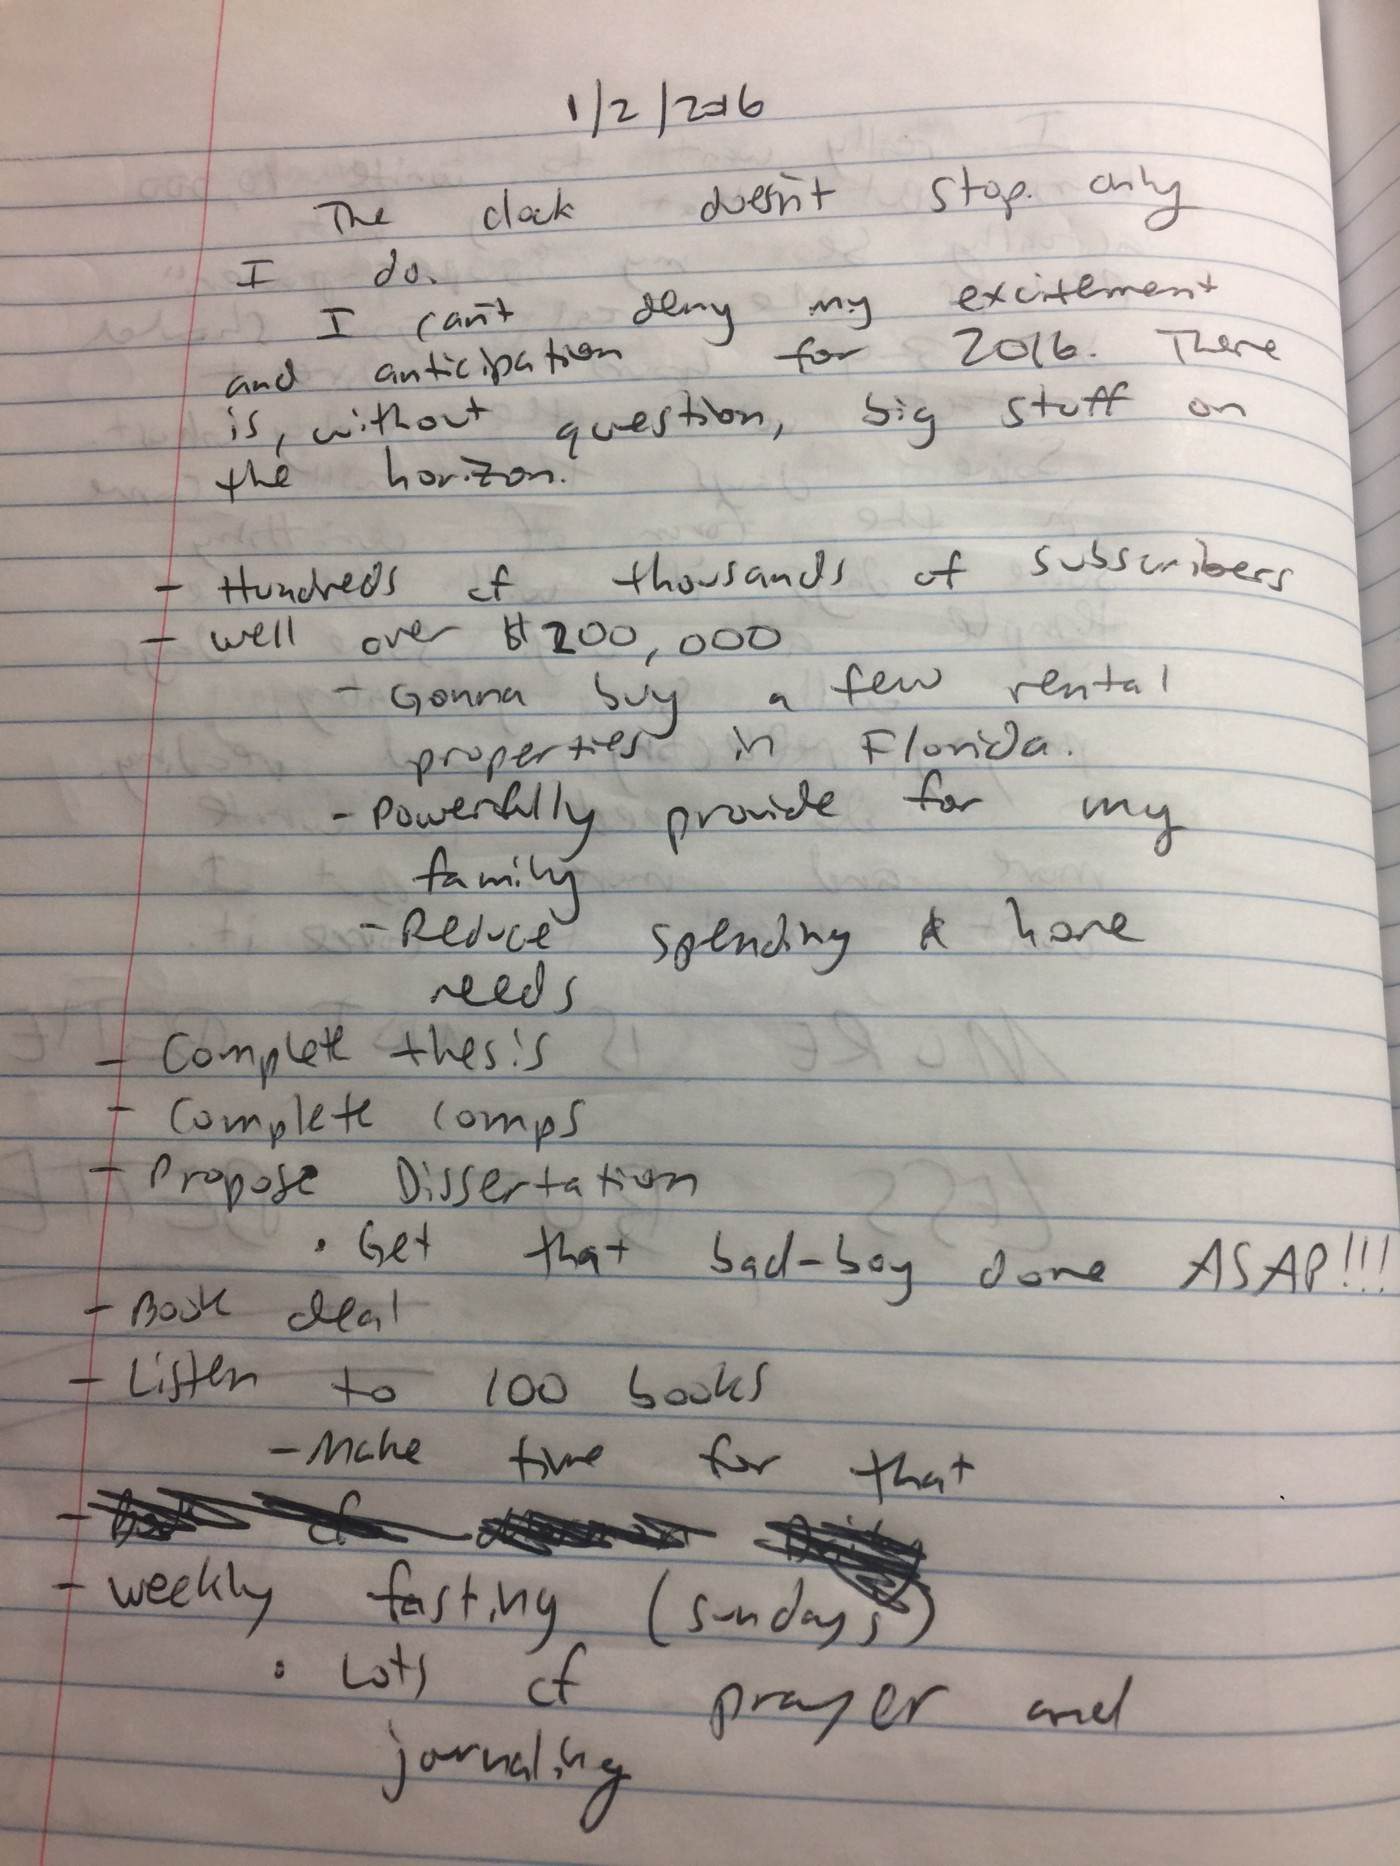 1/2/2016
The clock doesn't stop. Only
I do.
I can't deny my excitement
and anticipation for 2016. There
is, without question, big stuff on
the horizon.
- Hundreds of thousands of subscribers
- Well over $200,000
- Gonna buy a few rental
properties in Florida.
- Powerfully provide for my
family
- Reduce spending & home
needs
- Complete thesis
- Complete comps
- Propose Dissertation
• Get that bad-boy done ASAP!!!
- Book deal
- Listen to 100 books
- Make time for that
- weekly fasting (sundays)
• Lots of prayer and
journaling